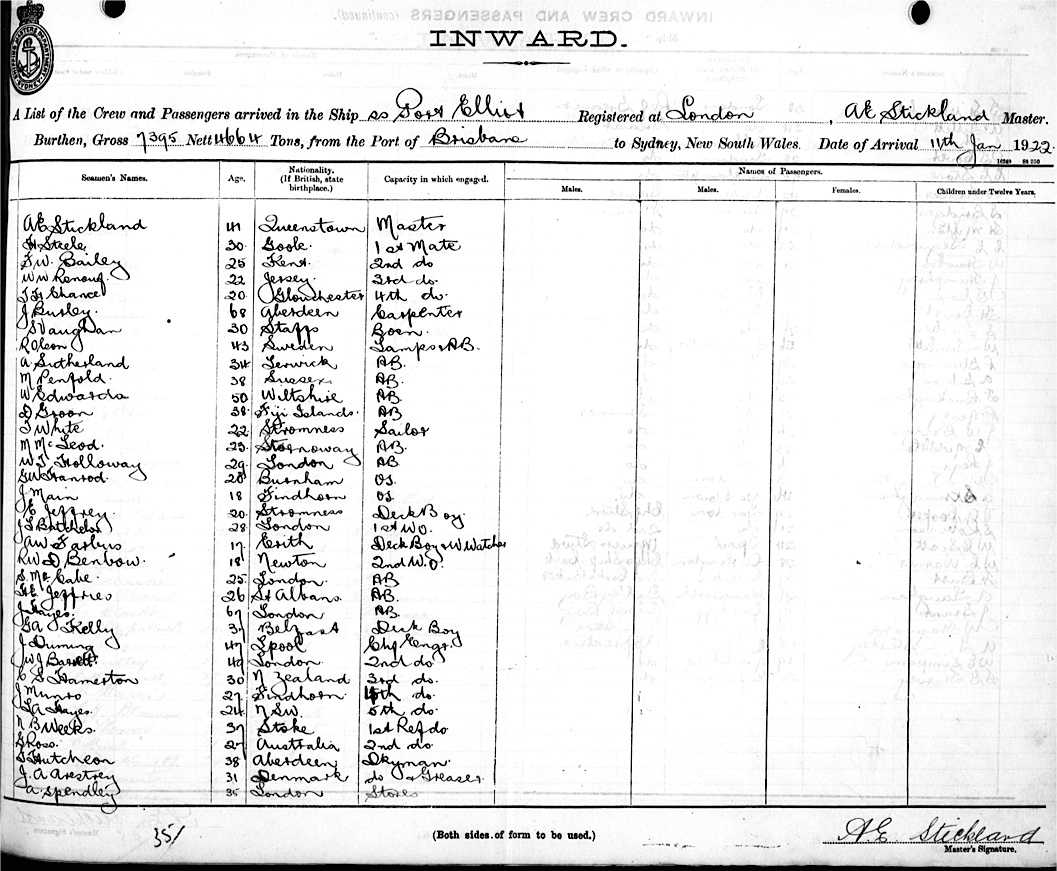 INWARD CREW AND PASSENGERS (continued).
INWARD.
A List of the Crew and Passengers arrived in the Ship ss Port Elliot Registered at London, A E Stickland Master.
Burthen, Gross 7395 Nett 4664 Tons, from the Port of Brisbane to Sydney, New South Wales. Date of Arrival 11th Jan 1922.
Seamen's Names. Age. Nationality. (If British, state birthplace.) Capacity in which engaged. Names of Passengers.
Males. Males. Females. Children under Twelve Years.
A E Stickland 41 Queenstown Master
H Steele 30 Goole 1st Mate
F. W. Bailey 25 Kent 2nd do
W W Renouf 22 Jersey 3rd do
J H Chance 20 Glouchester 4th do
J Burley 68 Aberdeen Carpenter
J S Vaughan 30 Staffs Bosn
R Olson 43 Sweden Lamps & AB.
A Sutherland 34 Lerwick AB.
M Penfold 38 Sussex AB.
W Edwards 50 Wiltshire AB.
D Groon 38 Fiji Islands AB
J White 22 Stromness Sailor
M McLeod 23 Stornoway AB.
W J Holloway 29 London AB
28 Burnham OS.
J Main 18 Findhorn OS
E Jeffrey 20 Stromness Deck Boy
J S Batchelor 28 London 1st W.O.
17 Erith Deck Boy & W Watcher
R W D Benbow 18 Newton 2nd W.O.
S McCabe 25 London AB
H E Jeffries 26 St Albans AB.
J Hayes 67 London AB.
G A Kelly 37 Belfast Deck Boy
J Durning 47 Lpool Chf Engr.
W J Barrett 47 London 2nd do
C S Hamerton 30 N Zealand 3rd do.
J Munro 27 Findhorn 4th do.
L A Hayes 24 N S W. 5th do.
N B Weeks 37 Stoke 1st Ref do
G Ross 27 Australia 2nd do
J Hutcheon 38 Aberdeen Dkyman.
J. A Arestrey 31 Denmark do & Greaser.
A Spendley 35 London Stores
35/
(Both sides of form to be used.)
A. E Stickland
Master's Signature.